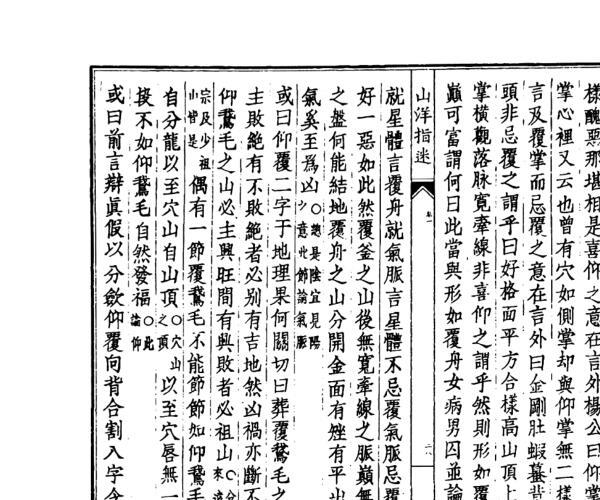 樣醜惡那堪相是喜仰之意在言外楊公曰仰掌
掌心裡又云也曾有穴如側掌却與仰掌無二樣
言及覆掌而忌覆之意在言外曰金剛肚蝦蟇
頭非忌覆之謂乎曰好格面平方合樣高山頂上
掌橫觀落脉寛牽線非喜仰之謂乎然則形如覆
巔可富謂何曰此當與形如覆舟女病男囚並論
山洋指迷 卷一
就星體言覆舟就氣脈言星體不忌覆氣脈忌覆
好一惡如此然覆釜之山後無寛牽線之脈巔無
之盤何能結地覆舟之山分開金面有矬有平
氣奚至為凶○總是陰宜見陽少意此節論氣脈
或曰仰覆二字于地理果何關切曰葬覆鵞毛之
主敗絕有不敗絕者必别有吉地然凶禍亦斷不
仰鵞毛之山必主興旺間有興敗者必祖山○分來
宗及少祖山皆是偶有一節覆鵞毛不能節節如仰鵞毛
自分龍以至穴山自山頂○穴山之頂以至穴唇無一
投不如仰鵞毛自然發福○此論仰
或曰前言辯眞假以分斂仰覆向背合割入字